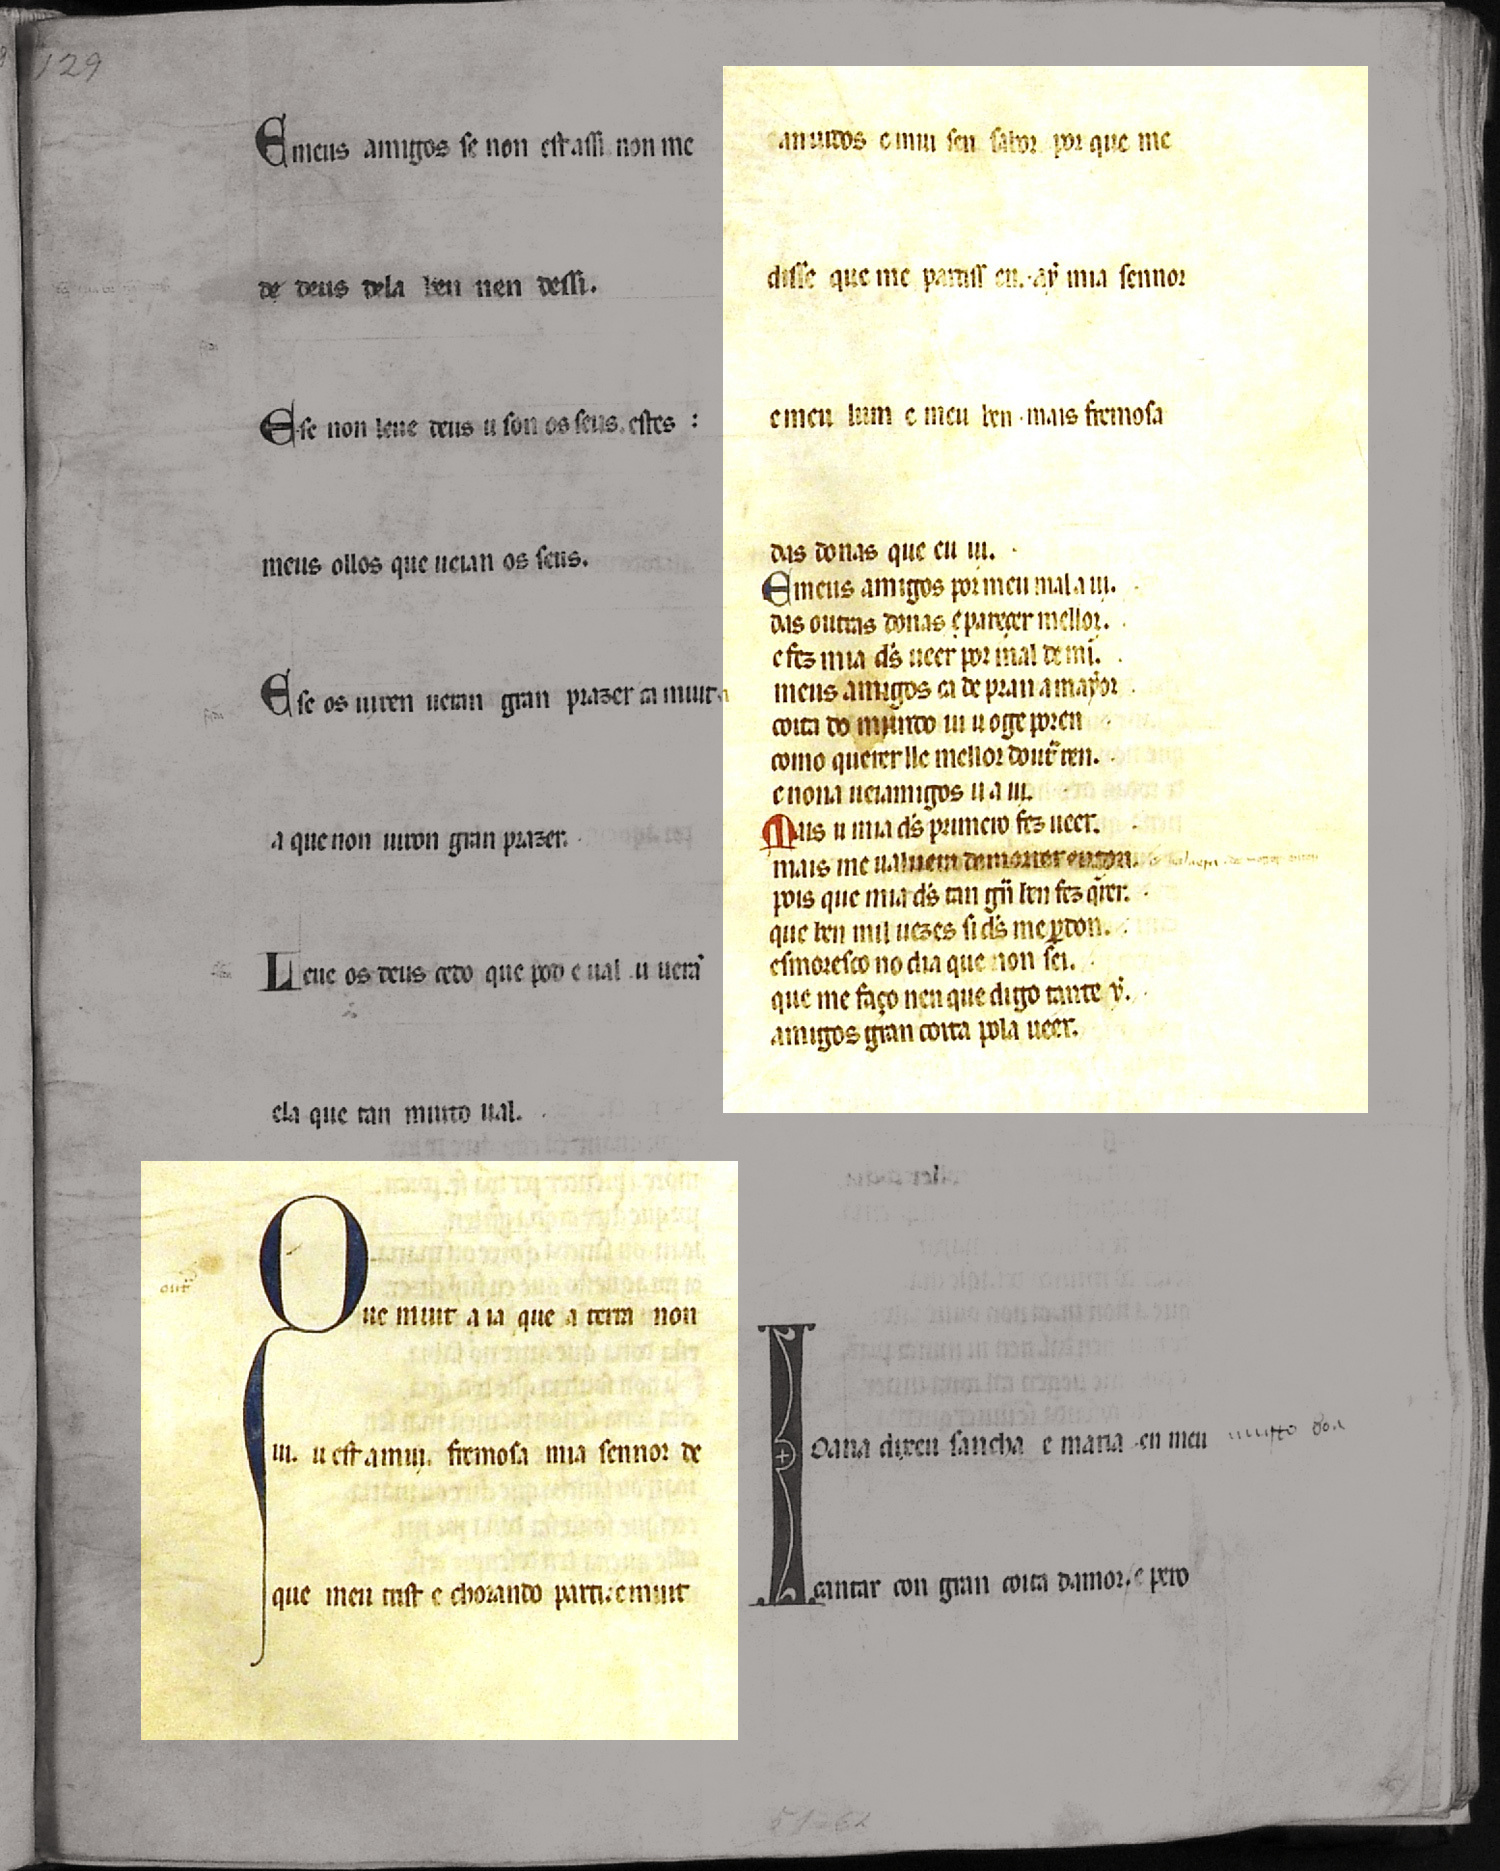 129
E meus amigos se non est assi non me
de deus dela ben nen dessi.
E se non leue deus u son os seus. estes :
meus ollos que ueian os seus.
E se os uiren ueran gran prazer ca muit a
a que non uiron gran prazer.
Leue os deus cedo que pod e ual u uerã
ela que tan muito ual.
Que muit a ia que a terra non
ui. u est a mui. fremosa mia sennor de
que meu trist e chorando parti. e muit
amidos e mui sen sabor por que me
disse que me partiss en. aỹ mia sennor
e meu lum e meu ben. mais fremosa
das donas que eu ui.
E meus amigos por meu mal a ui.
das outras donas e pareçer mellor.
e fez mia ds̃ ueer por mal de mĩ.
meus amigos ca de pran a mayor
coita do mundo ui u oge poren
como querer lle mellor doutᷓ ren.
e nona ueiamigos u a ui.
Mais u mia ds̃ primeiro fez ueer.
mais me ualuera de morrer enton.
pois que mia ds̃ tan gᷓn ben fez qᷓrer.
que ben mil uezes si ds̃ me ꝑdon.
esmoresco no dia que non sei.
que me faço nen que digo tante ỹ.
amigos gran coita pola ueer.
Ioana dixeu sancha e maria en meu
cantar con gran coita damor. e pero